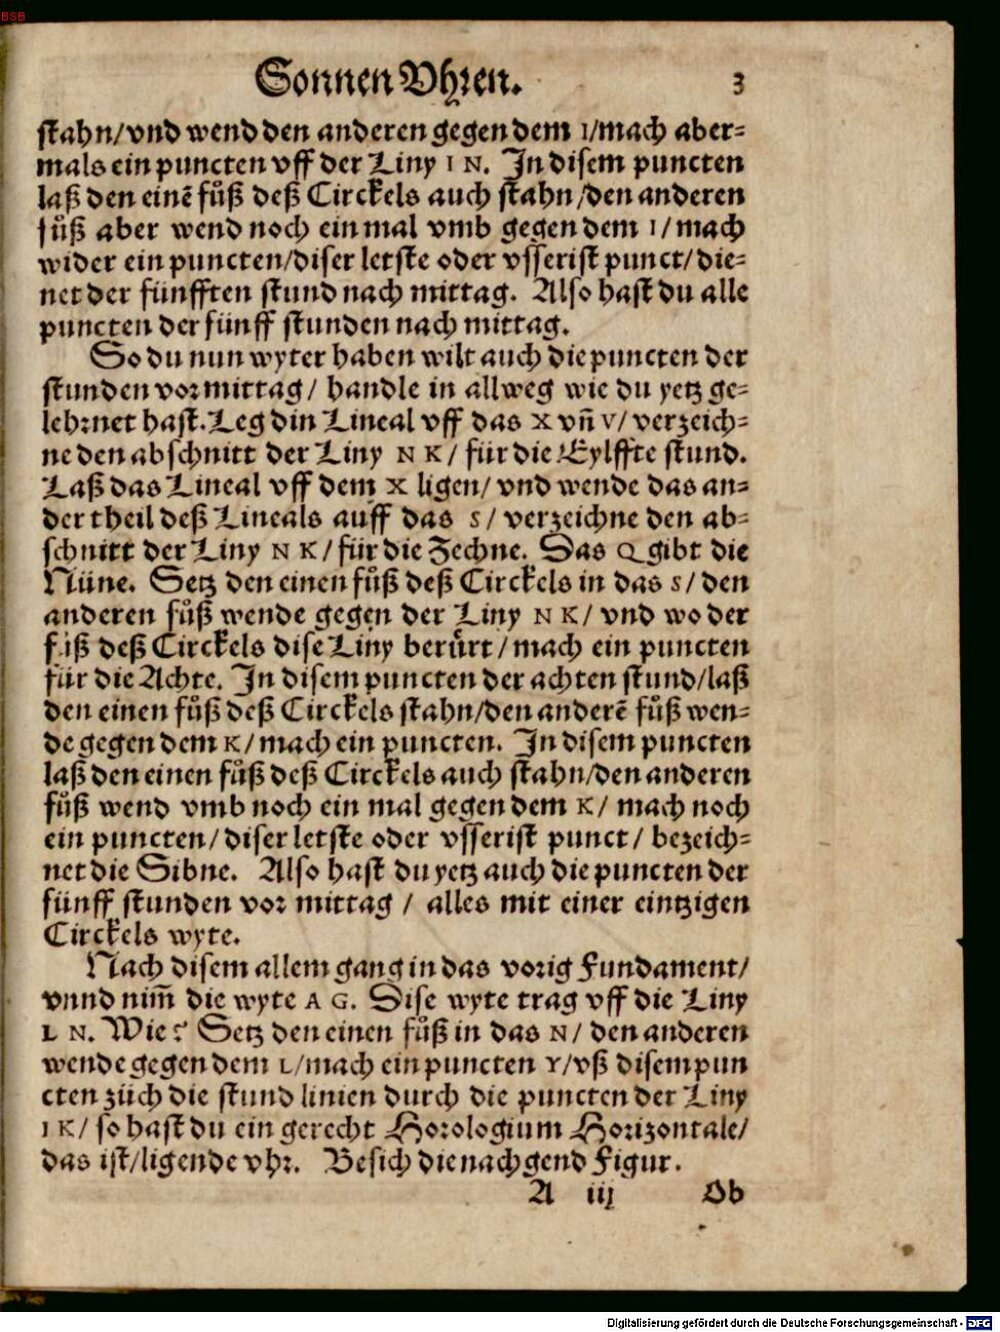 BSB
Sonnen Vhren. 3
stahn/vnd wend den anderen gegen dem I/mach aber=
mals ein puncten vff der Liny I N. In disem puncten
laß den einē fůß deß Circkels auch stahn/den anderen
fůß aber wend noch ein mal vmb gegen dem I/mach
wider ein puncten/diser letste oder vsserist punct/die=
net der fünfften stund nach mittag. Also hast du alle
puncten der fünff stunden nach mittag.
So du nun wyter haben wilt auch die puncten der
stunden vor mittag/ handle in allweg wie du yetz ge=
lehrnet hast. Leg din Lineal vff das X vñ V/verzeich=
ne den abschnitt der Liny N K/ für die Eylffte stund.
Laß das Lineal vff dem X ligen/vnd wende das an=
der theil deß Lineals auff das S/verzeichne den ab=
schnitt der Liny N K/für die Zechne. Das Q gibt die
Nüne. Setz den einen fůß deß Circkels in das S/den
anderen fůß wende gegen der Liny N K/ vnd wo der
fůß deß Circkels dise Liny berůrt/mach ein puncten
für die Achte. In disem puncten der achten stund/laß
den einen fůß deß Circkels stahn/den anderē fůß wen=
de gegen dem K/mach ein puncten. In disem puncten
laß den einen fůß deß Circkels auch stahn/den anderen
fůß wend vmb noch ein mal gegen dem K/ mach noch
ein puncten/diser letste oder vsserist punct/ bezeich=
net die Sibne. Also hast du yetz auch die puncten der
fünff stunden vor mittag / alles mit einer eintzigen
Circkels wyte.
Nach disem allem gang in das vorig Fundament/
vnnd nim̄ die wyte A G. Dise wyte trag vff die Liny
L N. Wie? Setz den einen fůß in das N/ den anderen
wende gegen dem L/mach ein puncten Y/vß disem pun
cten züch die stund linien durch die puncten der Liny
I K/ so hast du ein gerecht Horologium Horizontale/
das ist/ligende vhr. Besich die nachgend Figur.
A iij Ob
Digitalisierung gefördert durch die Deutsche Forschungsgemeinschaft - DFG